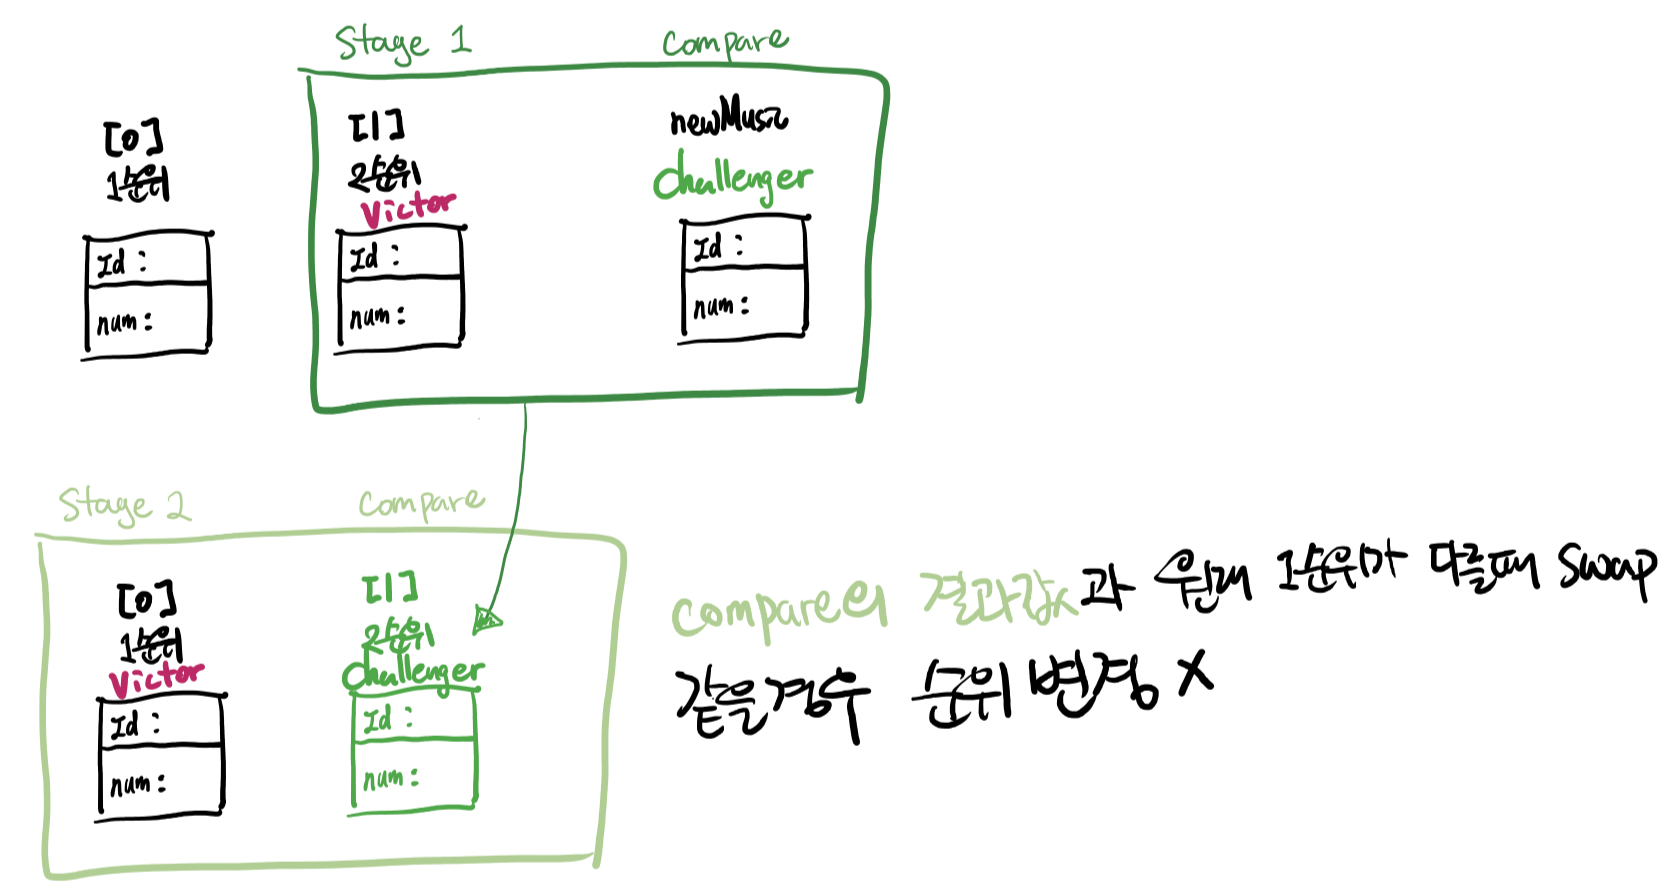 Stage 1
Compare
[0]
1순위
Id :
num :
[1]
2순위
Victor
Id :
num :
newMusic
challenger
Id :
num :
Stage 2
Compare
[0]
1순위
Victor
Id :
num :
[1]
2순위
challenger
Id :
num :
compare의 결과값과 원래 1순위가 다를때 swap
같을경우 순위 변경 X